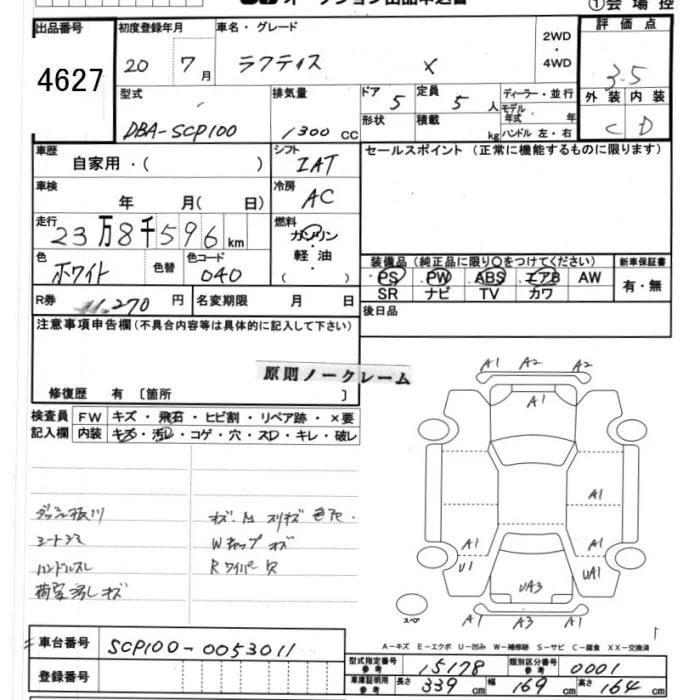 オークション出品申込書
①会場控
出品番号
4627
初度登録年月
20 7月
車名・グレード
ラクティス X
2WD
・
4WD
評価点
3.5
外装 内装
C D
型式
DBA-SCP100
排気量
1300 CC
ドア 5
定員 5人
形状
積載 kg
ディーラー・並行
モデル年式 年
ハンドル 左・右
車歴
自家用・( )
シフト
IAT
セールスポイント(正常に機能するものに限ります)
車検
年 月(日)
冷房
AC
走行
23万8千596km
燃料
ガソリン
・
軽油
( )
色
ホワイト
色替
色コード
040
装備品(純正品に限り〇をつけてください)
PS PW ABS エアB AW
SR ナビ TV カワ
新車保証書
有・無
R券 11,270円
名変期限 月 日
後日品
注意事項申告欄(不具合内容等は具体的に記入して下さい)
原則ノークレーム
修復歴 有〔箇所 〕
検査員記入欄
FW キズ・飛石・ヒビ割・リペア跡・×要
内装 キズ・汚れ・コゲ・穴・スレ・キレ・破レ
シートシミ
ハンドルスレ
Wキャップ キズ
Rワイパー 欠
A1 A2 A2
A1
A1
A1 A1
U1 UA1
UA3
A1 A3 A1
スペア
A-キズ E-エクボ U-凹み W-補修跡 S-サビ C-腐食 XX-交換済
車台番号
SCP100-0053011
登録番号
型式指定番号参考 15178
類別区分番号参考 0001
車庫証明用参考
長さ 339cm
幅 169cm
高さ 164cm